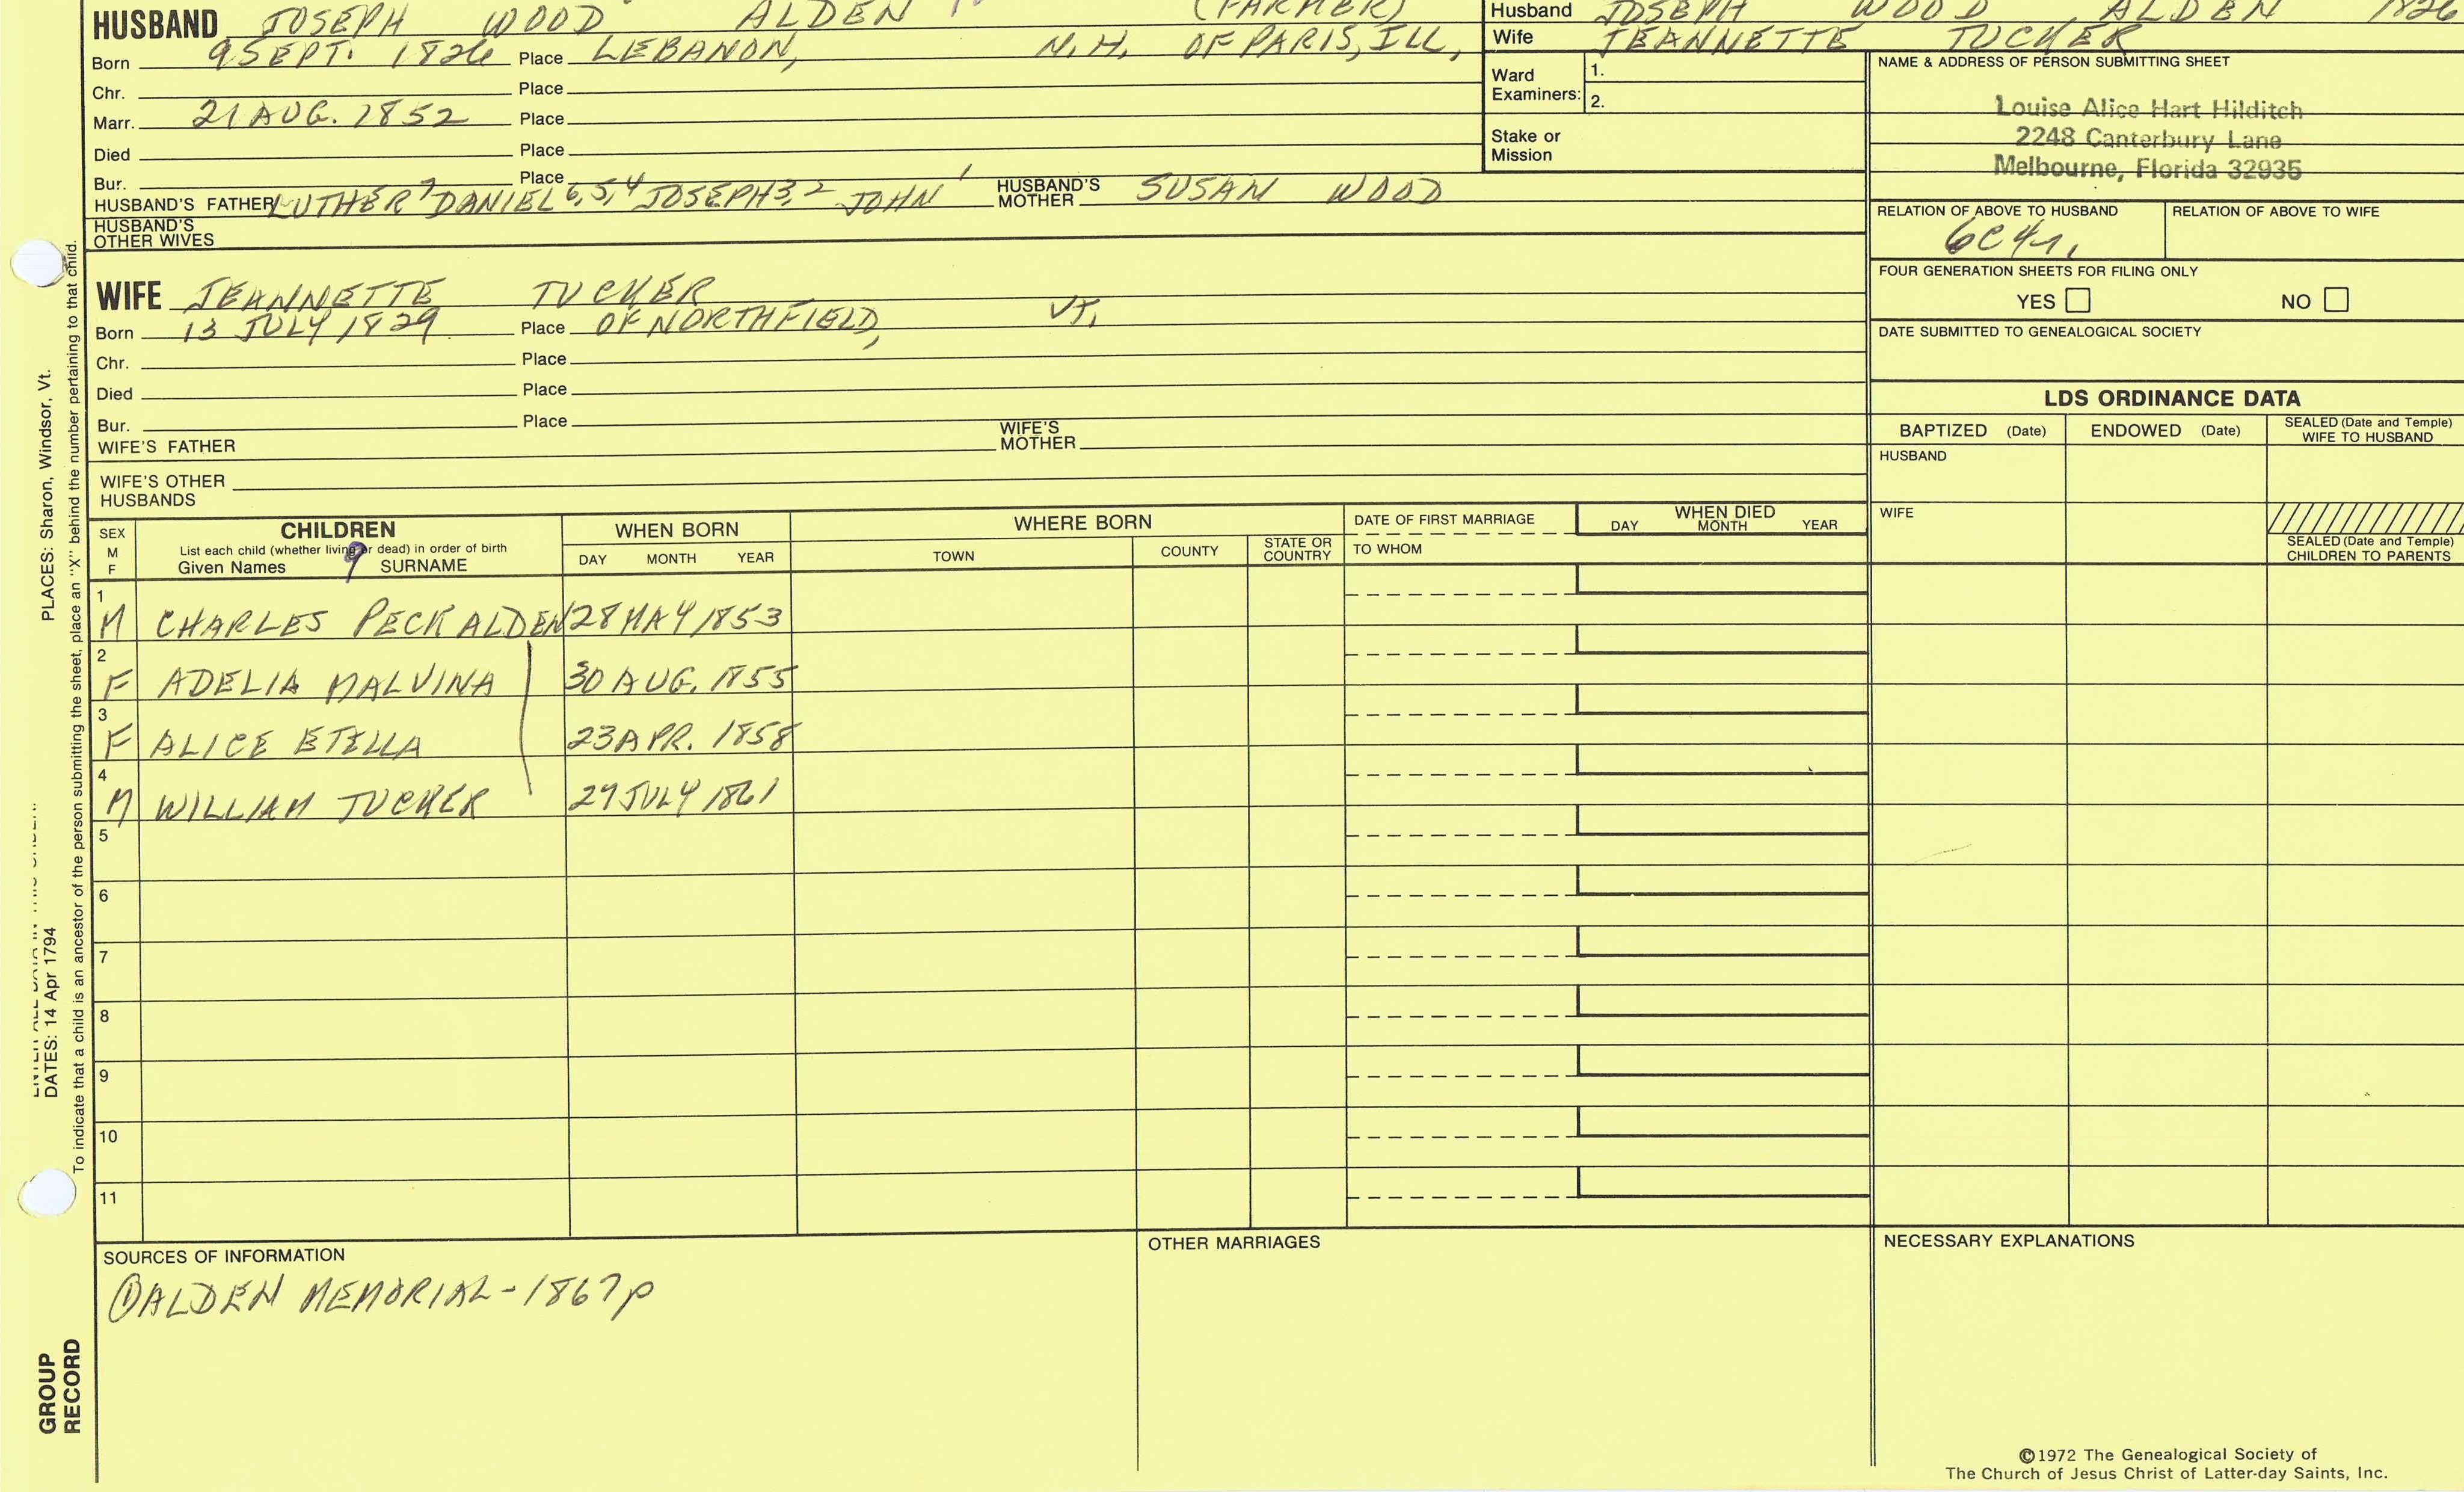 HUSBAND JOSEPH WOOD ALDEN (FARMER)
Born 9 SEPT. 1826 Place LEBANON, N.H. OF PARIS, ILL,
Chr. Place
Marr. 21 AUG. 1852 Place
Died Place
Bur. Place
HUSBAND'S FATHER LUTHER 7 DANIEL 6,5,4 JOSEPH 3,2 JOHN 1 HUSBAND'S MOTHER SUSAN WOOD
HUSBAND'S
OTHER WIVES
Husband JOSEPH WOOD ALDEN 1826
Wife JEANNETTE TUCKER
Ward
Examiners:
1.
2.
Stake or
Mission
NAME & ADDRESS OF PERSON SUBMITTING SHEET
Louise Alice Hart Hilditch
2248 Canterbury Lane
Melbourne, Florida 32935
RELATION OF ABOVE TO HUSBAND RELATION OF ABOVE TO WIFE
FOUR GENERATION SHEETS FOR FILING ONLY
YES NO
DATE SUBMITTED TO GENEALOGICAL SOCIETY
WIFE JEANNETTE TUCKER
Born 13 JULY 1829 Place OF NORTHFIELD, VT,
Chr. Place
Died Place
Bur. Place
WIFE'S FATHER WIFE'S MOTHER
WIFE'S OTHER
HUSBANDS
LDS ORDINANCE DATA
BAPTIZED (Date) ENDOWED (Date) SEALED (Date and Temple)
WIFE TO HUSBAND
HUSBAND
WIFE
SEALED (Date and Temple)
CHILDREN TO PARENTS
SEX
M
F
CHILDREN
List each child (whether living or dead) in order of birth
Given Names SURNAME
WHEN BORN
DAY MONTH YEAR
WHERE BORN
TOWN COUNTY STATE OR
COUNTRY
DATE OF FIRST MARRIAGE
TO WHOM
WHEN DIED
DAY MONTH YEAR
1
M CHARLES PECK ALDEN 28 MAY 1853
2
F ADELIA MALVINA 30 AUG. 1855
3
F ALICE ETELLA 23 APR. 1858
4
M WILLIAM TUCKER 29 JULY 1861
5
6
7
8
9
10
11
SOURCES OF INFORMATION
① ALDEN MEMORIAL - 1867 p
OTHER MARRIAGES
NECESSARY EXPLANATIONS
©1972 The Genealogical Society of
The Church of Jesus Christ of Latter-day Saints, Inc.
DATES: 14 Apr 1794 PLACES: Sharon, Windsor, Vt.
To indicate that a child is an ancestor of the person submitting the sheet, place an "X" behind the number pertaining to that child.
GROUP
RECORD